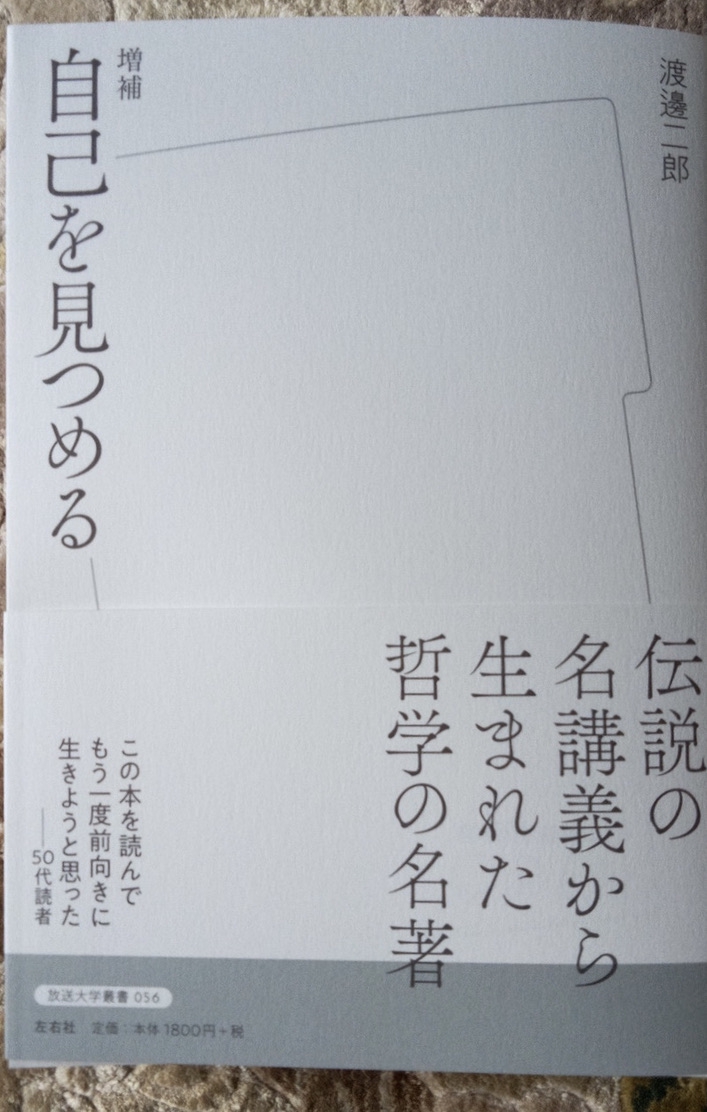 渡邊二郎
増補
自己を見つめる
伝説の
名講義から
生まれた
哲学の名著
この本を読んで
もう一度前向きに
生きようと思った
──50代読者
放送大学叢書 056
左右社 定価:本体1800円+税